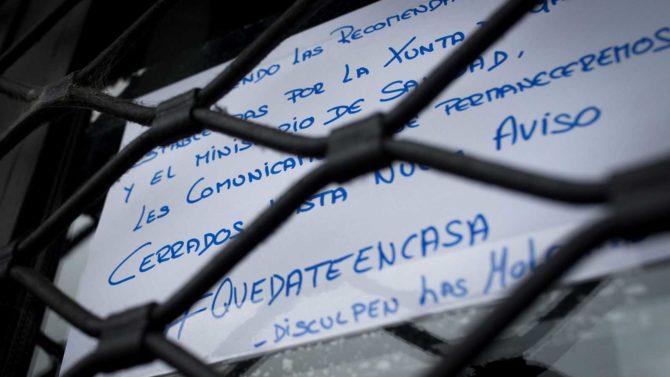 LAS RECOMENDA
POR LA XUNTA
Y EL MINISTERIO DE SANIDAD,
LES COMUNICAM PERMANECEREMOS
CERRADOS HASTA NUEVO AVISO
#QUEDATEENCASA
- DISCULPEN LAS MOLE